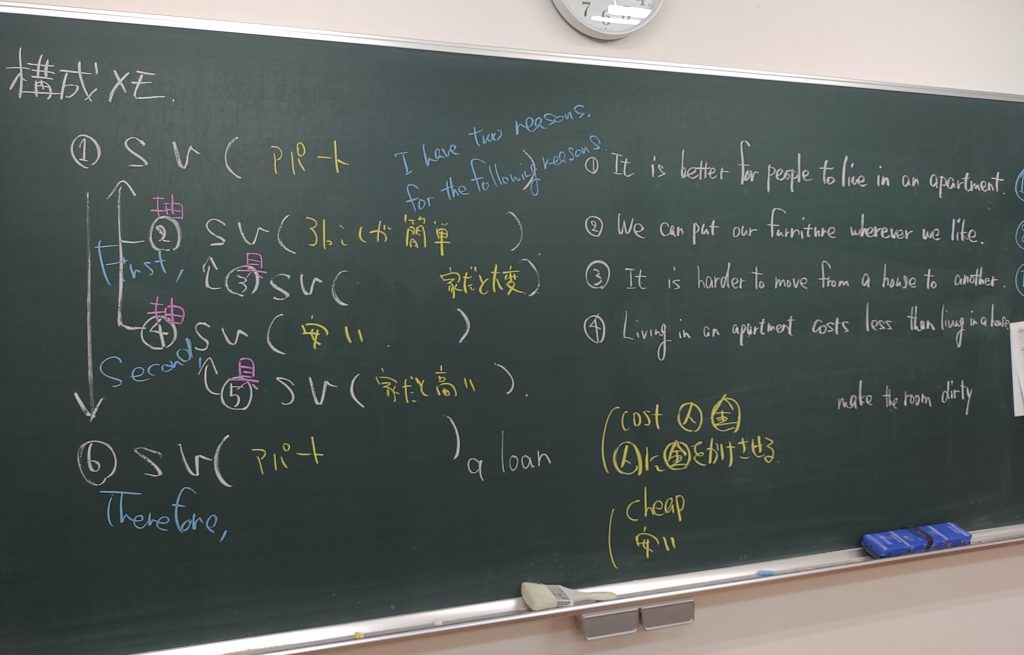 構成メモ.
① S V ( アパート )
I have two reasons.
for the following reasons
抽
② S V ( 引っこしが 簡単 )
First,
具
③ S V ( 家だと大変 )
抽
④ S V ( 安い. )
Second,
具
⑤ S V ( 家だと高い ).
⑥ S V ( アパート )
a loan
Therefore,
① It is better for people to live in an apartment.
② We can put our furniture wherever we like.
③ It is harder to move from a house to another.
④ Living in an apartment costs less than living in a house
make the room dirty
cost 人 金
人に金をかけさせる
cheap
安い
7 6